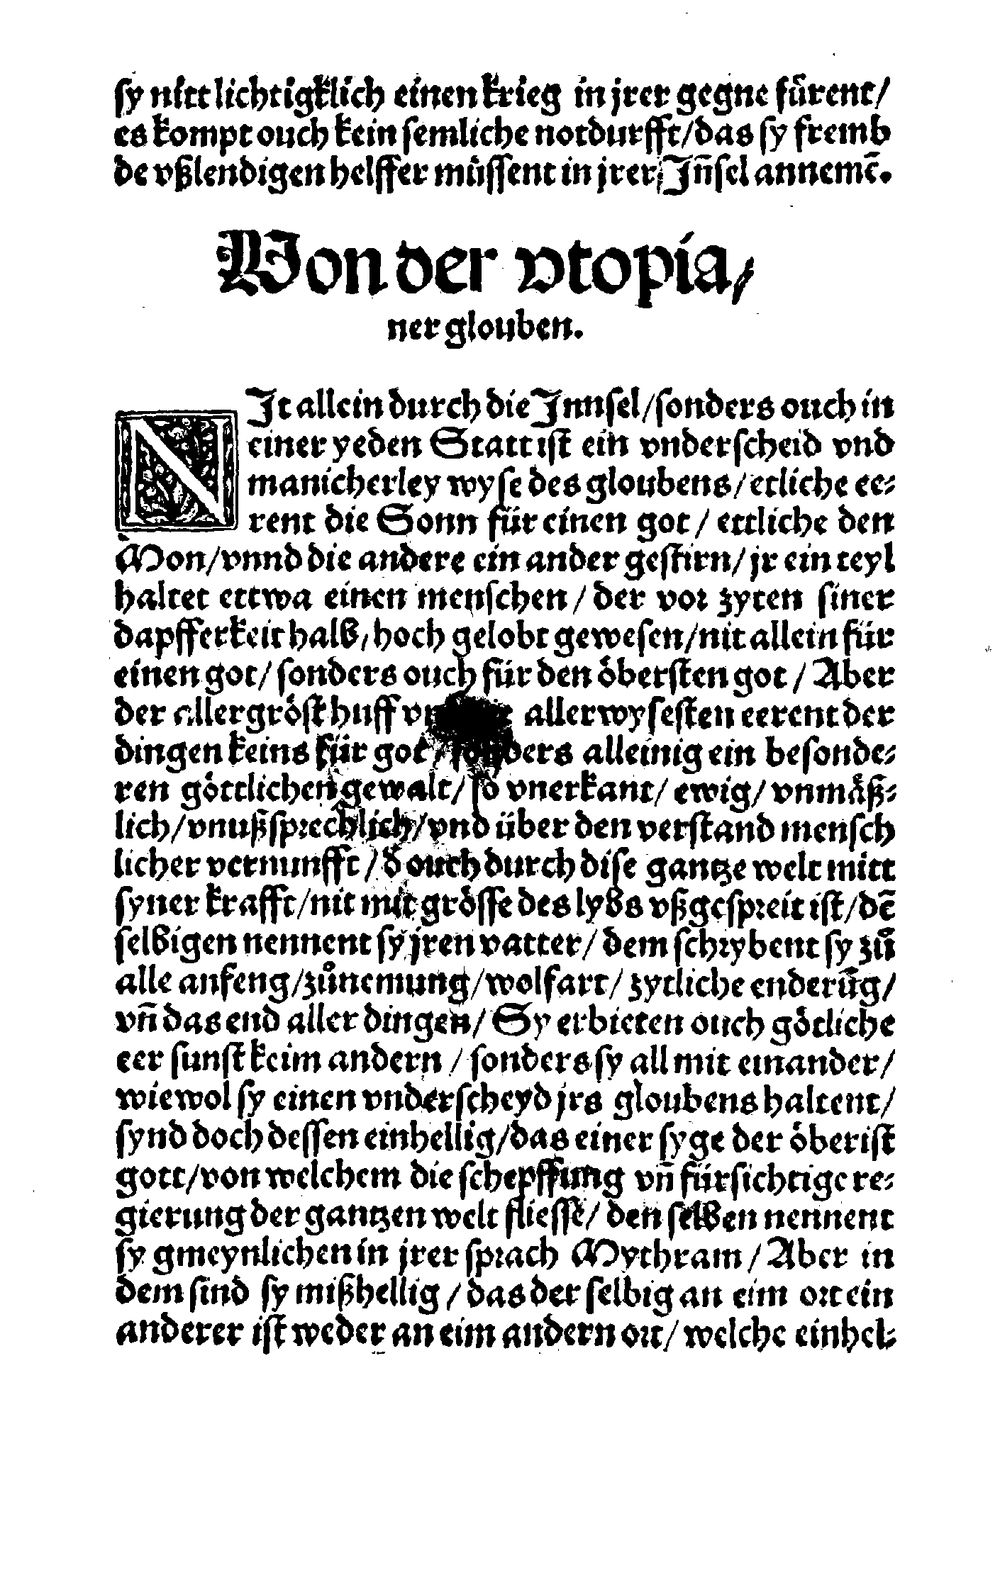 sy nitt lichtigklich einen krieg in jrer gegne fürent/
es kompt ouch kein semliche notdurfft/das sy fremb
de vßlendigen helffer müssent in jrer Jñsel annemē.
Von der vtopia/
ner glouben.
NIt allein durch die Jnnsel/sonders ouch in
einer yeden Statt ist ein vnderscheid vnd
manicherley wyse des gloubens/etliche ee⸗
rent die Sonn für einen got/ ettliche den
Mon/vnnd die andere ein ander gestirn/jr ein teyl
haltet ettwa einen menschen/ der vor zyten siner
dapfferkeit halb/hoch gelobt gewesen/nit allein für
einen got/sonders ouch für den öbersten got/ Aber
der allergröst huff allerwysesten eerent der
dingen keins für got/ sonders alleinig ein besonde⸗
ren göttlichen gewalt/so vnerkant/ ewig/ vnmäß⸗
lich/vnußsprechlich/vnd über den verstand mensch
licher vernunfft/ d ouch durch dise gantze welt mitt
syner krafft/nit mit grösse des lybs vßgespreit ist/dē
selbigen nennent sy jren vatter/ dem schrybent sy zů
alle anfeng/zůnemung/wolfart/ zytliche enderūg/
vñ das end aller dingen/ Sy erbieten ouch götliche
eer sunst keim andern / sonders sy all mit einander/
wiewol sy einen vnderscheyd jrs gloubens haltent/
synd doch dessen einhellig/das einer syge der öberist
gott/von welchem die schepffung vñ fürsichtige re⸗
gierung der gantzen welt fliesse/ den selben nennent
sy gmeynlichen in jrer sprach Mythram/ Aber in
dem sind sy mißhellig/ das der selbig an eim ort ein
anderer ist weder an eim andern ort/ welche einhel⸗